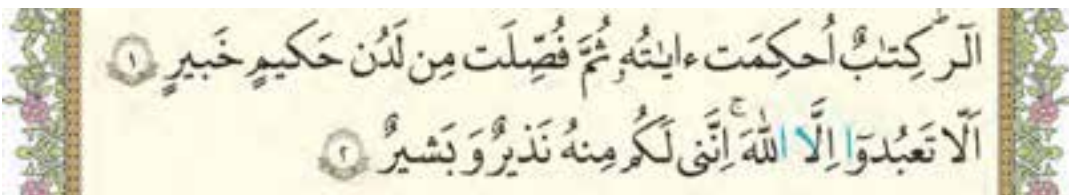 الٓرۚ كِتٰبٌ اُحكِمَت ءايٰتُهُۥ ثُمَّ فُصِّلَت مِن لَدُن حَكيمٍ خَبيرٍ ﴿١﴾
اَلّا تَعبُدوٓا اِلَّا اللّٰهَۚ اِنَّنى لَكُم مِنهُ نَذيرٌ وَ بَشيرٌ ﴿٢﴾